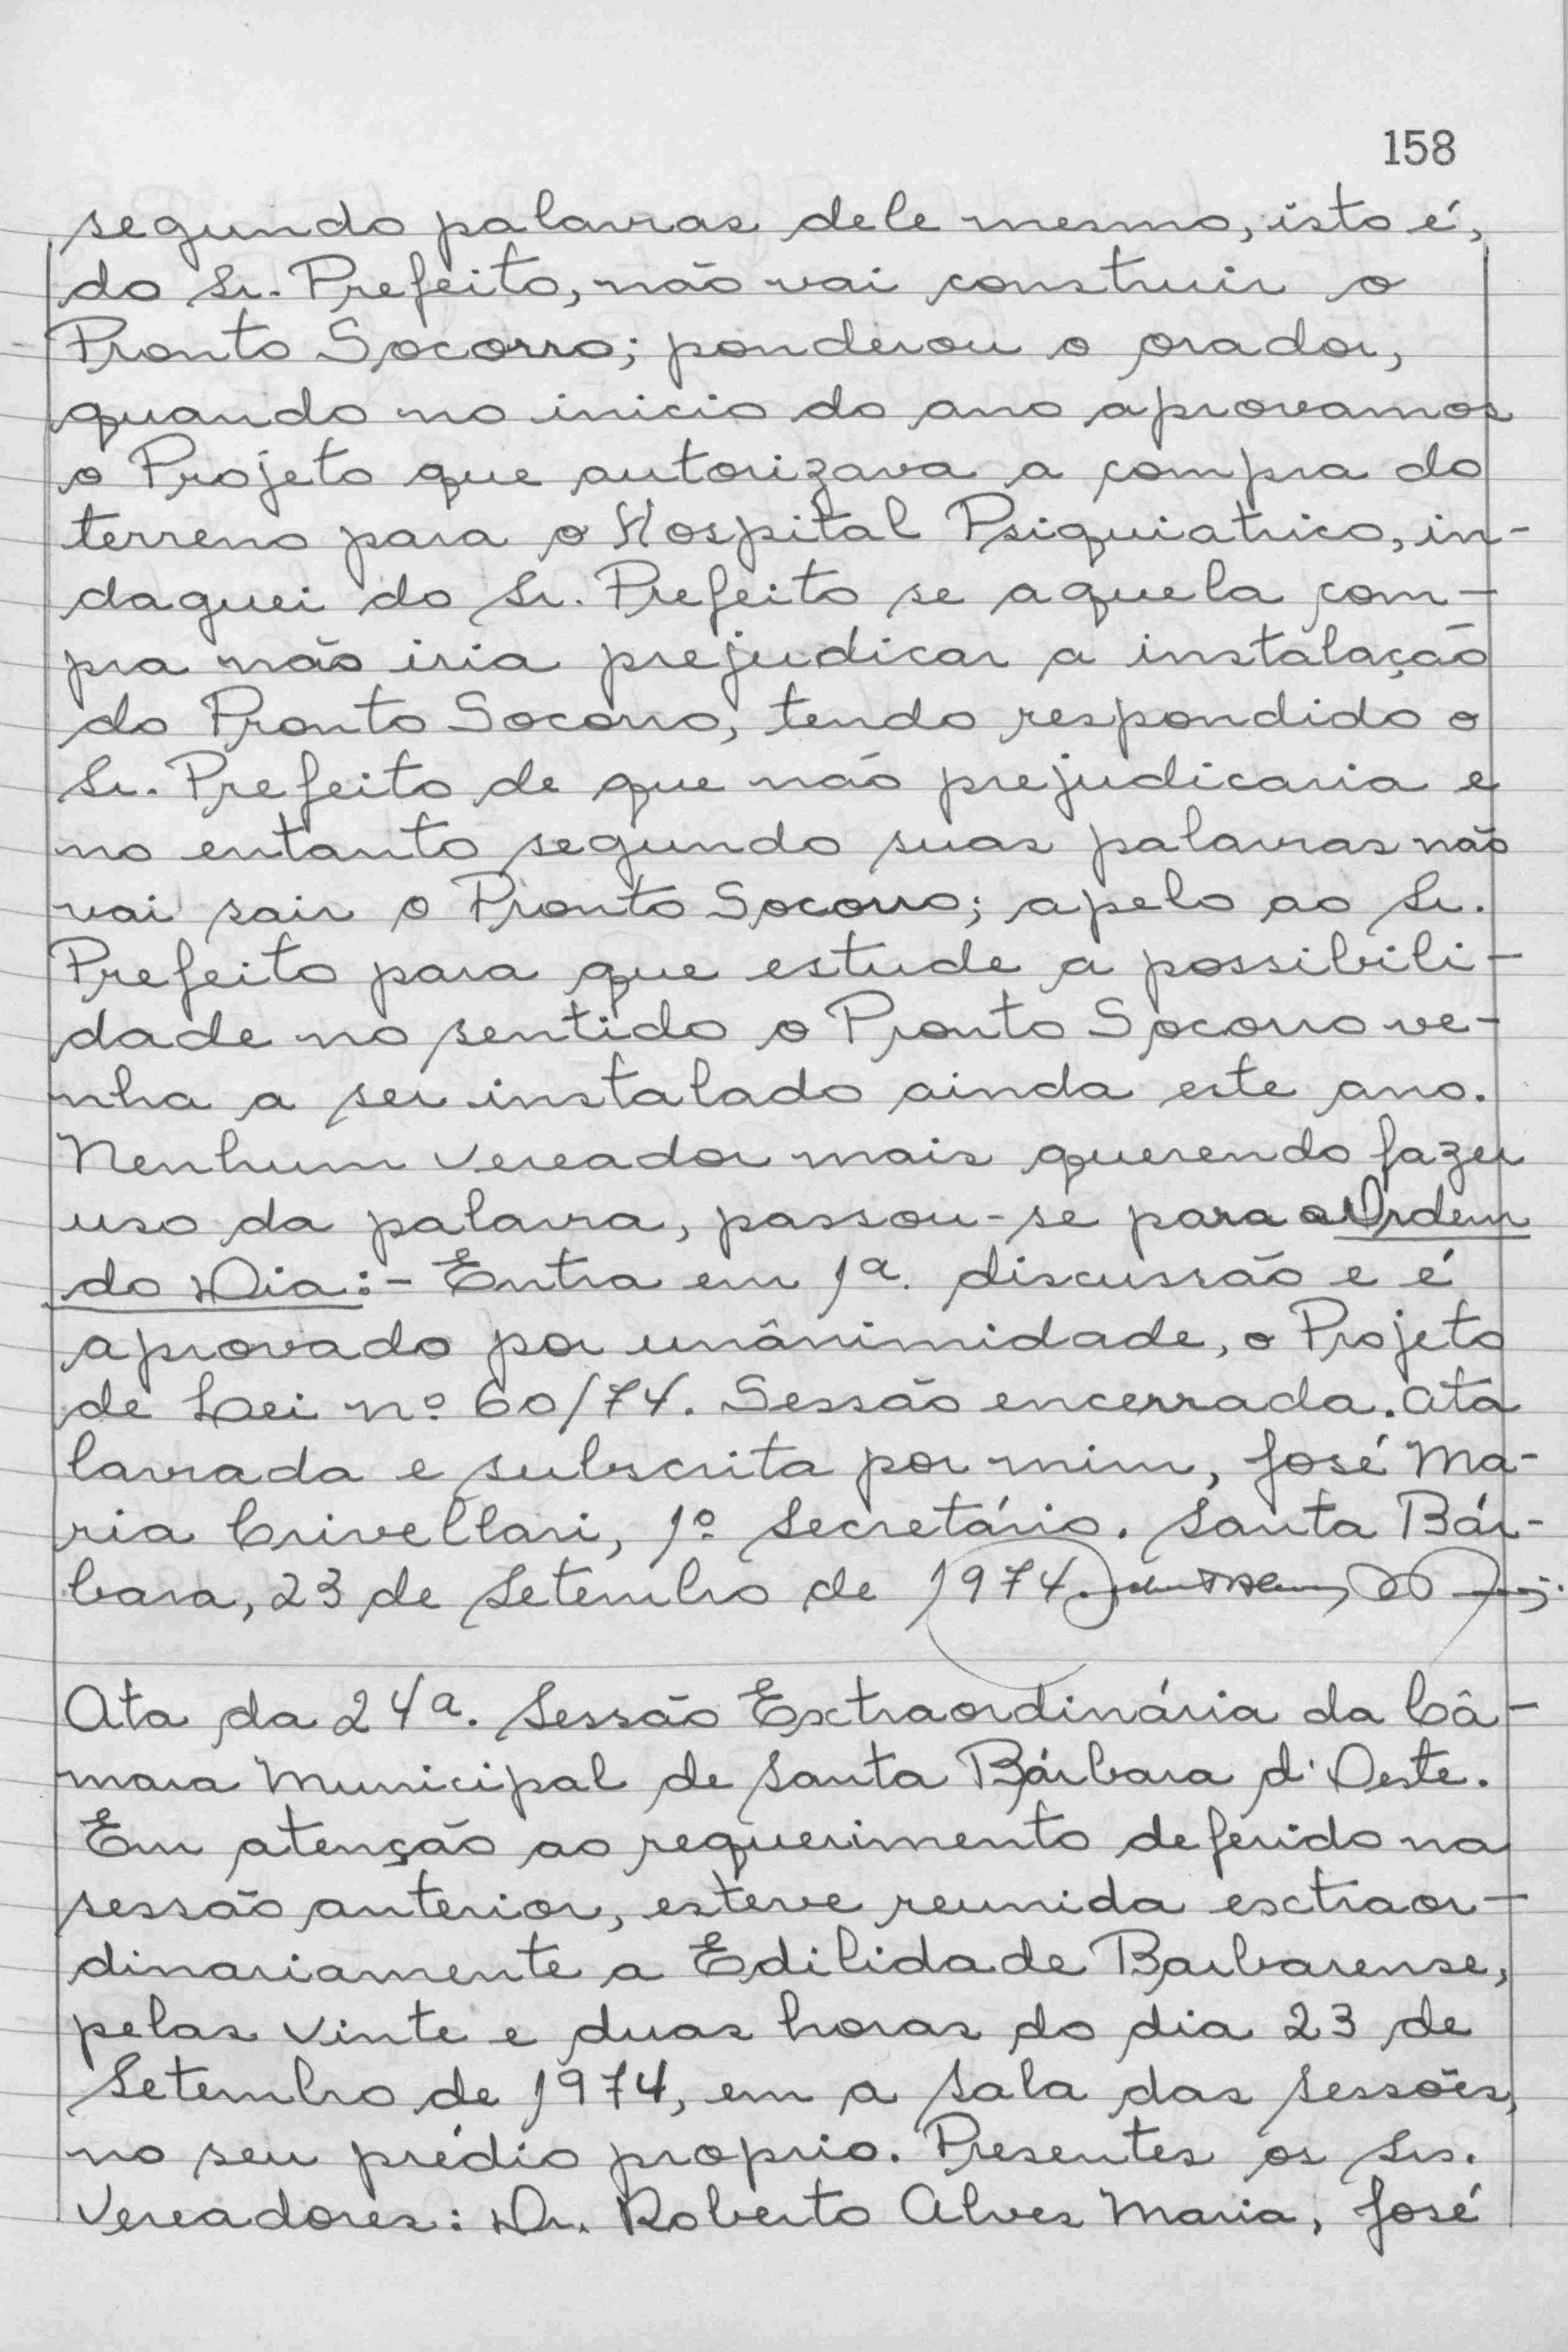 158
segundo palavras dele mesmo, isto é,
do Sr. Prefeito, não vai construir o
Pronto Socorro; ponderou o orador,
quando no inicio do ano aprovamos
o Projeto que autorizava a compra do
terreno para o Hospital Psiquiatrico, in-
daguei do Sr. Prefeito se aquela com-
pra não iria prejudicar a instalação
do Pronto Socorro, tendo respondido o
Sr. Prefeito de que não prejudicaria e
no entanto segundo suas palavras não
vai sair o Pronto Socorro; apelo ao Sr.
Prefeito para que estude a possibili-
dade no sentido o Pronto Socorro ve-
nha a ser instalado ainda este ano.
Nenhum vereador mais querendo fazer
uso da palavra, passou-se para a Ordem
do Dia:- Entra em 1ª. discussão e é
aprovado por unânimidade, o Projeto
de Lei nº 60/74. Sessão encerrada. Ata
lavrada e subscrita por mim, José Ma-
ria Crivellari, 1º Secretário. Santa Bár-
bara, 23 de Setembro de 1974.
Ata da 24ª. Sessão Extraordinária da Câ-
mara Municipal de Santa Bárbara d'Oeste.
Em atenção ao requerimento deferido na
sessão anterior, esteve reunida extraor-
dinariamente a Edilidade Barbarense,
pelas vinte e duas horas do dia 23 de
Setembro de 1974, em a sala das sessões,
no seu prédio proprio. Presentes os Srs.
Vereadores: Dr. Roberto Alves Maria, José